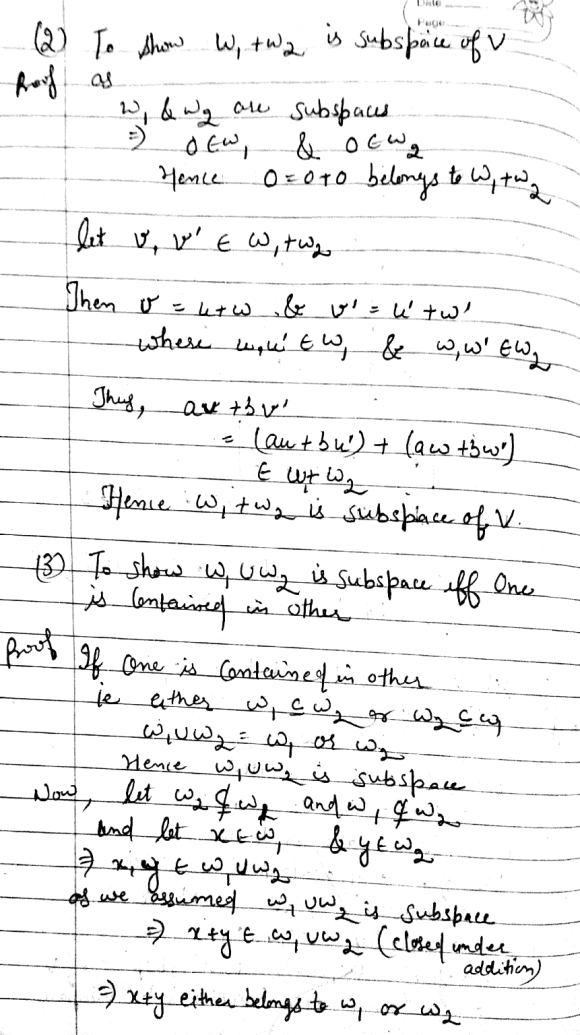 Date
Page
(2) To show W₁+W₂ is subspace of V
Proof as
W₁ & W₂ are subspaces
⇒ 0 ∈ W₁ & 0 ∈ W₂
Hence 0 = 0+0 belongs to W₁+W₂
let v, v' ∈ W₁+W₂
Then v = u+w & v' = u'+w'
where u,u' ∈ W₁ & w,w' ∈ W₂
Thus, av + bv'
= (au+bu') + (aw+bw')
∈ W+W₂
Hence W₁+W₂ is subspace of V.
(3) To show W₁∪W₂ is subspace iff One
is Contained in other
Proof If One is Contained in other
ie either W₁ ⊆ W₂ or W₂ ⊆ W₁
W₁∪W₂ = W₁ or W₂
Hence W₁∪W₂ is subspace
Now, let W₂ ⊄ W₁ and W₁ ⊄ W₂
and let x ∈ W₁ & y ∈ W₂
⇒ x, y ∈ W₁∪W₂
as we assumed W₁∪W₂ is subspace
⇒ x+y ∈ W₁∪W₂ (closed under
addition)
⇒ x+y either belongs to W₁ or W₂